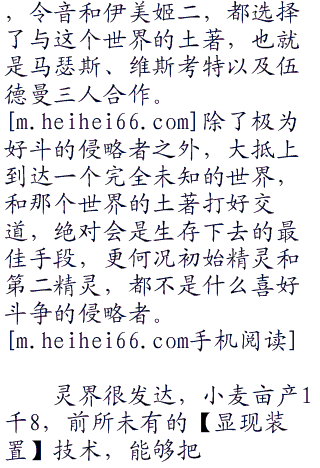 ，令音和伊美姬二，都选择
了与这个世界的土著，也就
是马瑟斯、维斯考特以及伍
德曼三人合作。
[m.heihei66.com]除了极为
好斗的侵略者之外，大抵上
到达一个完全未知的世界，
和那个世界的土著打好交
道，绝对会是生存下去的最
佳手段，更何况初始精灵和
第二精灵，都不是什么喜好
斗争的侵略者。
[m.heihei66.com手机阅读]
灵界很发达，小麦亩产1
千8，前所未有的【显现装
置】技术，能够把